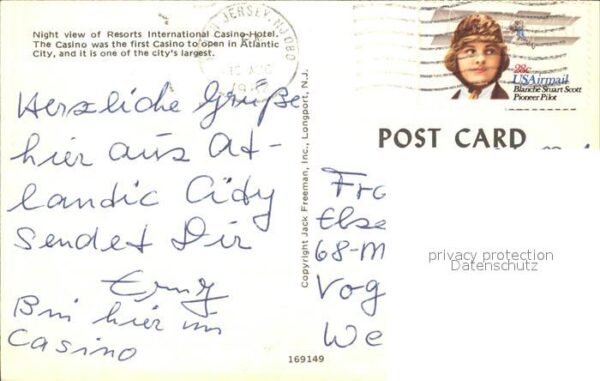 Night view of Resorts International Casino-Hotel.
The Casino was the first Casino to open in Atlantic
City, and it is one of the city's largest.
JERSEY, NJ 080
28c
USAirmail
Blanche Stuart Scott
Pioneer Pilot
POST CARD
Herzliche Grüße
hier aus At-
landic City
Sendet Dir
Bin hier im
Casino
Copyright Jack Freeman, Inc., Longport, N.J.
169149
Fra
Else
68-M
Vog
We
privacy protection
Datenschutz